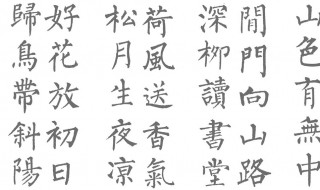 山色有無中
閒門向山路
深栁讀書堂
荷風送香氣
松月生夜凉
好花放初日
歸鳥帶斜陽